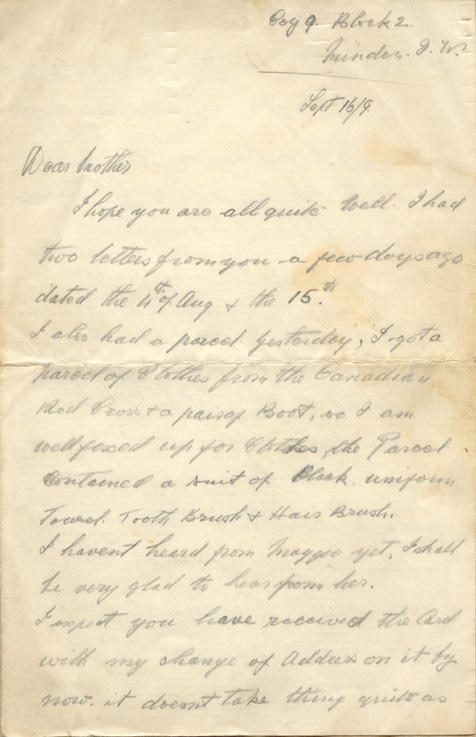 Coy 9. Block 2.
Minden. I. W.
Sept 16/9
Dear Mother
I hope you are all quite Well. I had
two letters from you a few days ago
dated the 4th of Aug & the 15.th
I also had a parcel yesterday, I got a
parcel of Clothes from the Canadian
Red Cross & a pair of Boot, so I am
well fixed up for Clothes, the Parcel
Contained a suit of Black. uniform
Towel. Tooth Brush & Hair Brush.
I havent heard from Maggie yet, I shall
be very glad to hear from her.
I expect you have received the Card
with my change of Address on it by
now. it doesnt take thing quite as